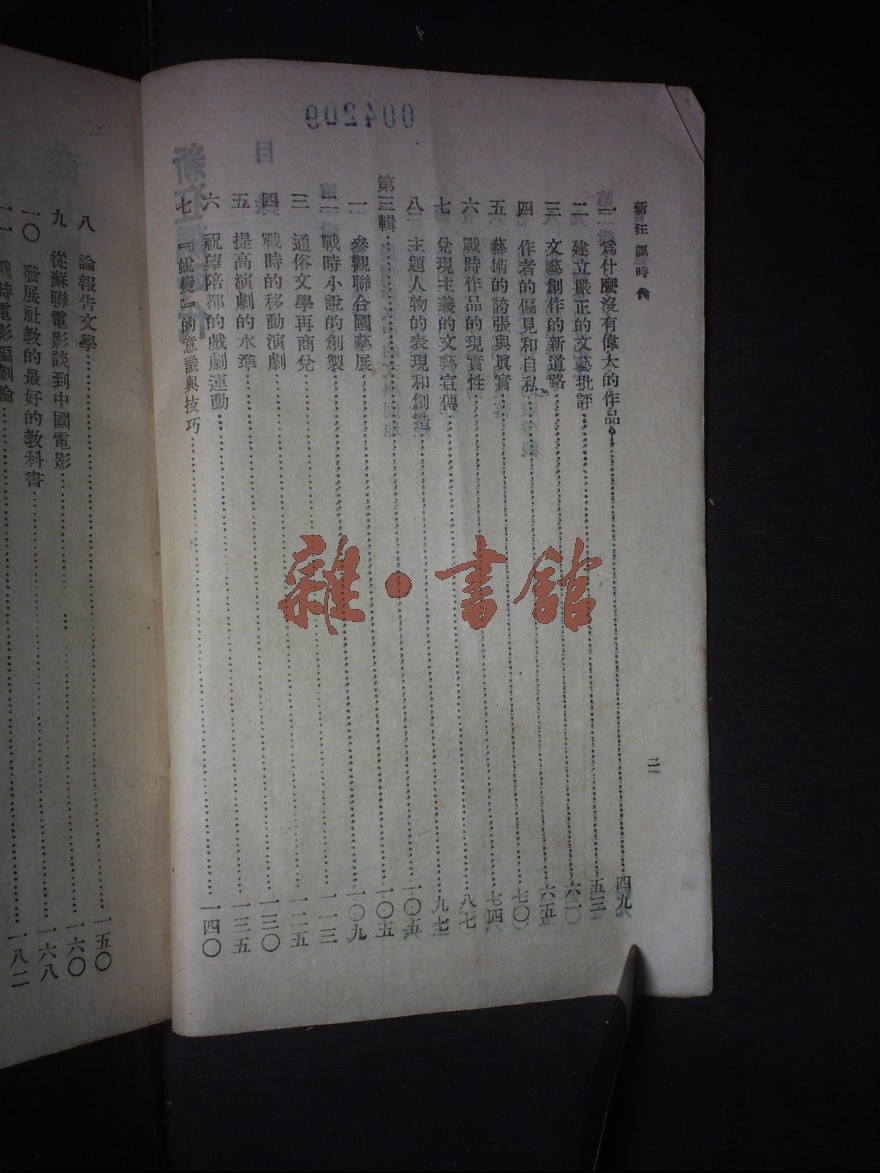 新狂飆時代
二
一 爲什麼沒有偉大的作品……四九
二 建立嚴正的文藝批評……五三
三 文藝創作的新道路……六一
四 作者的偏見和自私……六五
五 藝術的誇張與眞實……七〇
六 戰時作品的現實性……七四
七 兌現主義的文藝宣傳……八七
八 主題人物的表現和創造……九七
第三輯……一〇五
一 參觀聯合國藝展……一〇五
二 戰時小說的創製……一〇九
三 通俗文學再商兌……一一三
四 戰時的移動演劇……一二五
五 提高演劇的水準……一三〇
六 祝望陪都的戲劇運動……一三五
七 『蛻變』的意識與技巧……一四〇
八 論報告文學……一五〇
九 從蘇聯電影談到中國電影……一六〇
一〇 發展社教的最好的教科書……一六八
一一 戰時電影編劇論……一八二
004209
雜·書館